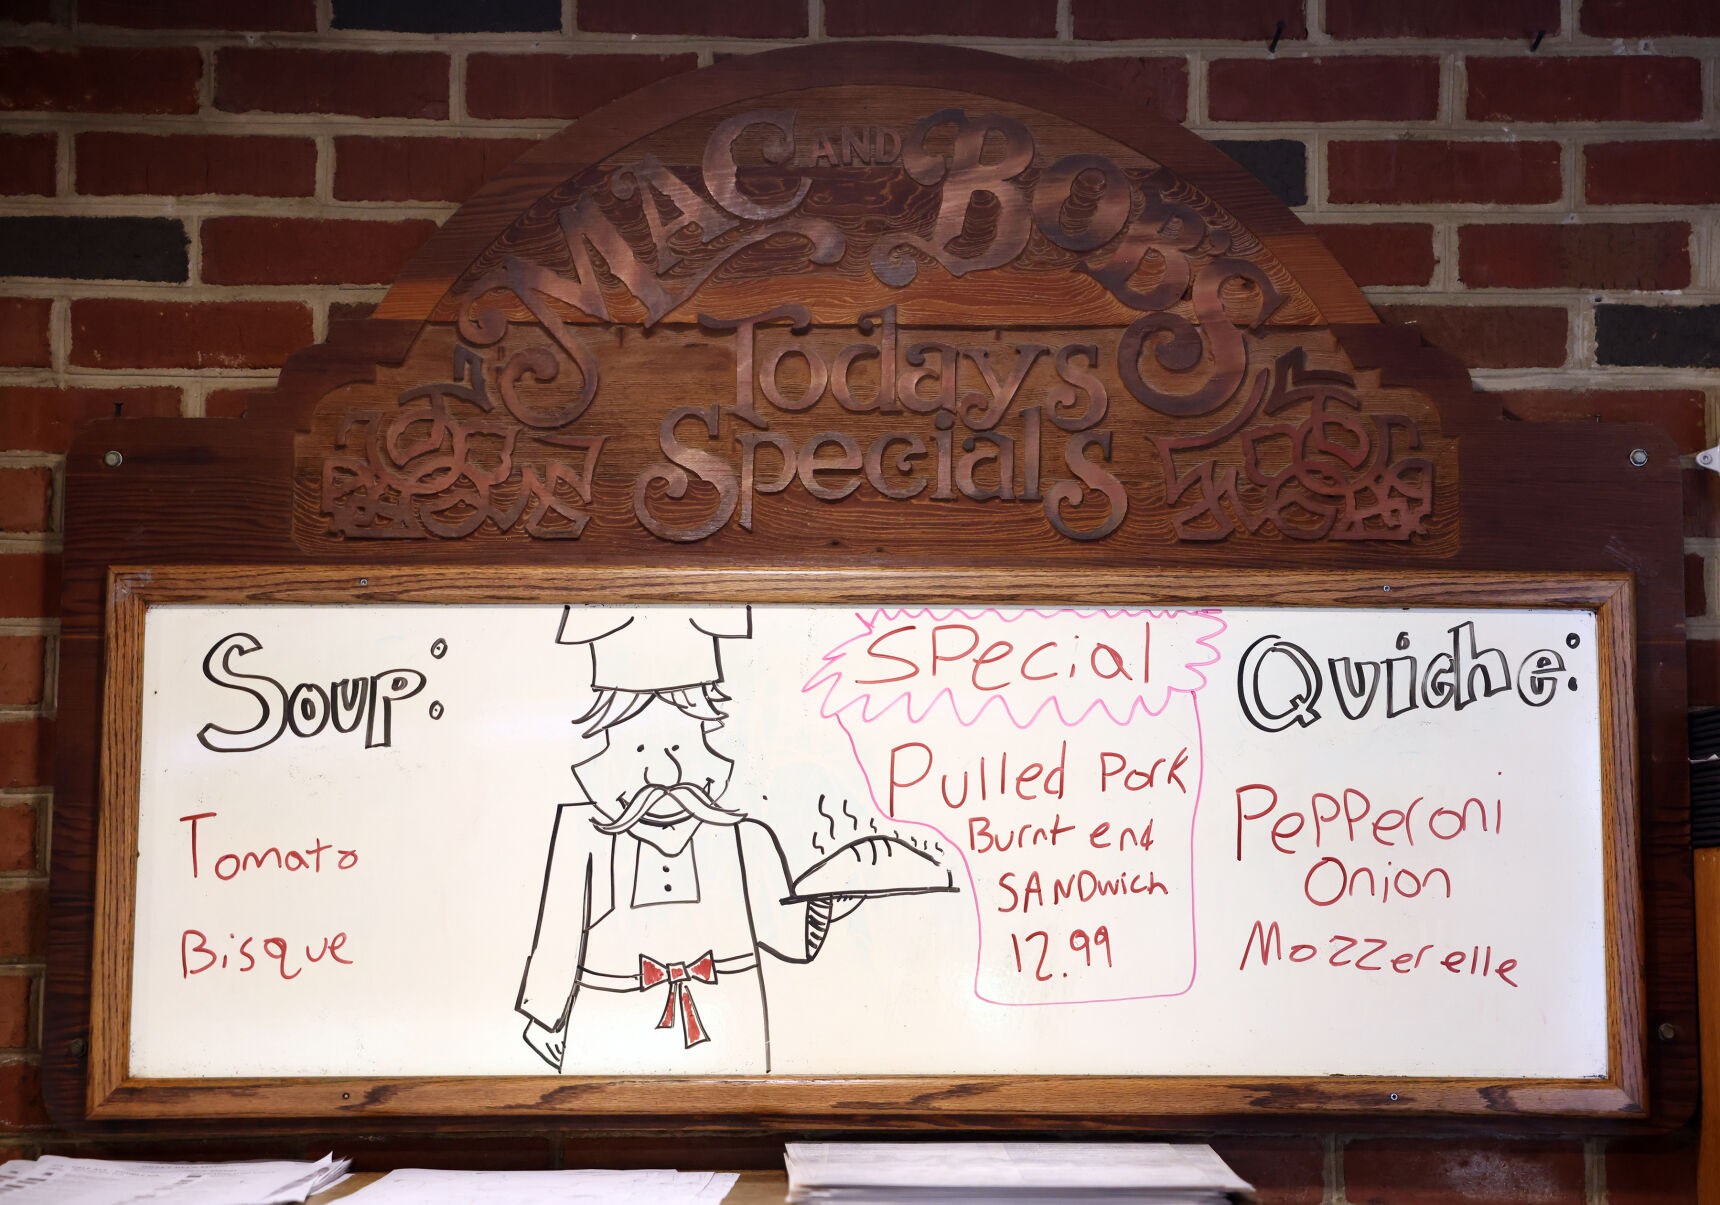 MAC AND BOB'S
Todays
Specials
Soup:
Tomato
Bisque
Special
Pulled Pork
Burnt end
SANDwich
12.99
Quiche:
Pepperoni
Onion
Mozzerelle